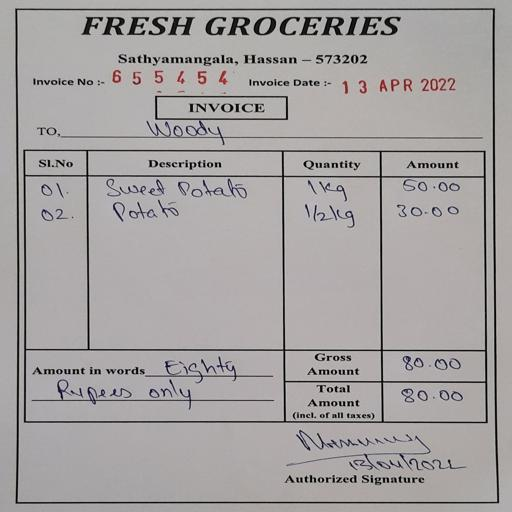 FRESH GROCERIES
Sathyamangala, Hassan – 573202
Invoice No :- 655454 Invoice Date :- 13 APR 2022
INVOICE
TO, Woody
Sl.No Description Quantity Amount
01. Sweet Potato 1kg 50.00
02. Potato 1/2kg 30.00
Amount in words Eighty
Rupees only
Gross
Amount 80.00
Total
Amount
(incl. of all taxes) 80.00
13/04/2022
Authorized Signature